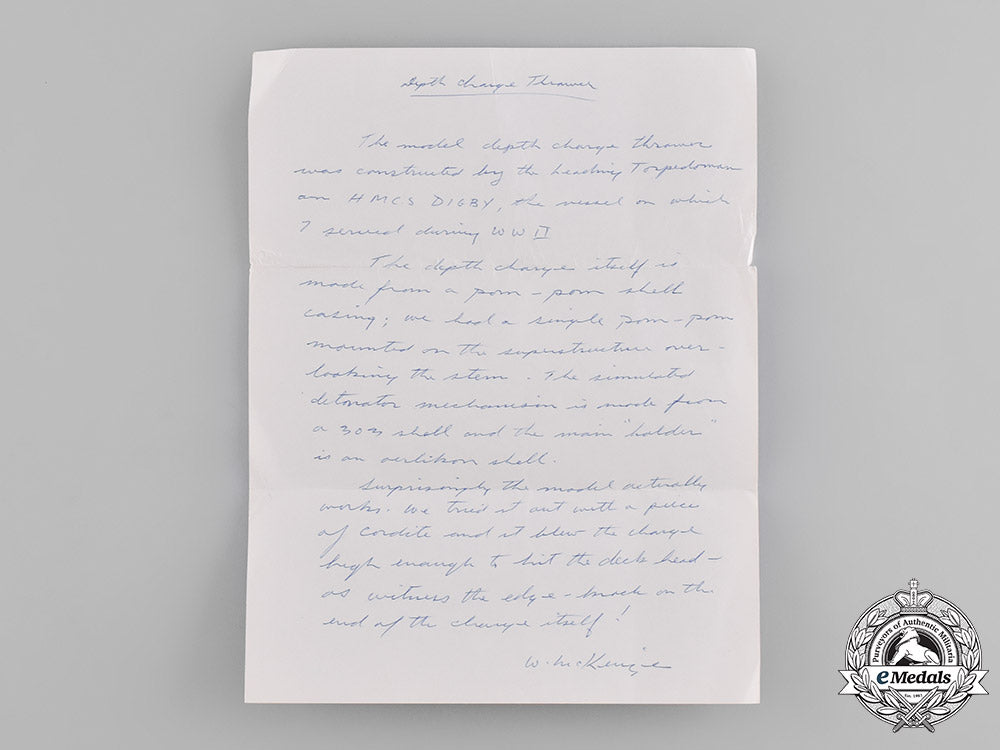 Depth Charge Thrower
The model depth charge thrower
was constructed by the Leading Torpedoman
on HMCS DIGBY, the vessel on which
I served during WW II
The depth charge itself is
made from a pom-pom shell
casing; we had a single pom-pom
mounted on the superstructure over-
looking the stern. The simulated
detonator mechanism is made from
a 303 shell and the main "holder"
is an oerlikon shell.
Surprisingly the model acterally
works. We tried it out with a piece
of cordite and it blew the charge
high enough to hit the deck head-
as witness the edge-mark on the
end of the charge itself!
W. McKenzie
Purveyors of Authentic Militaria
eMedals